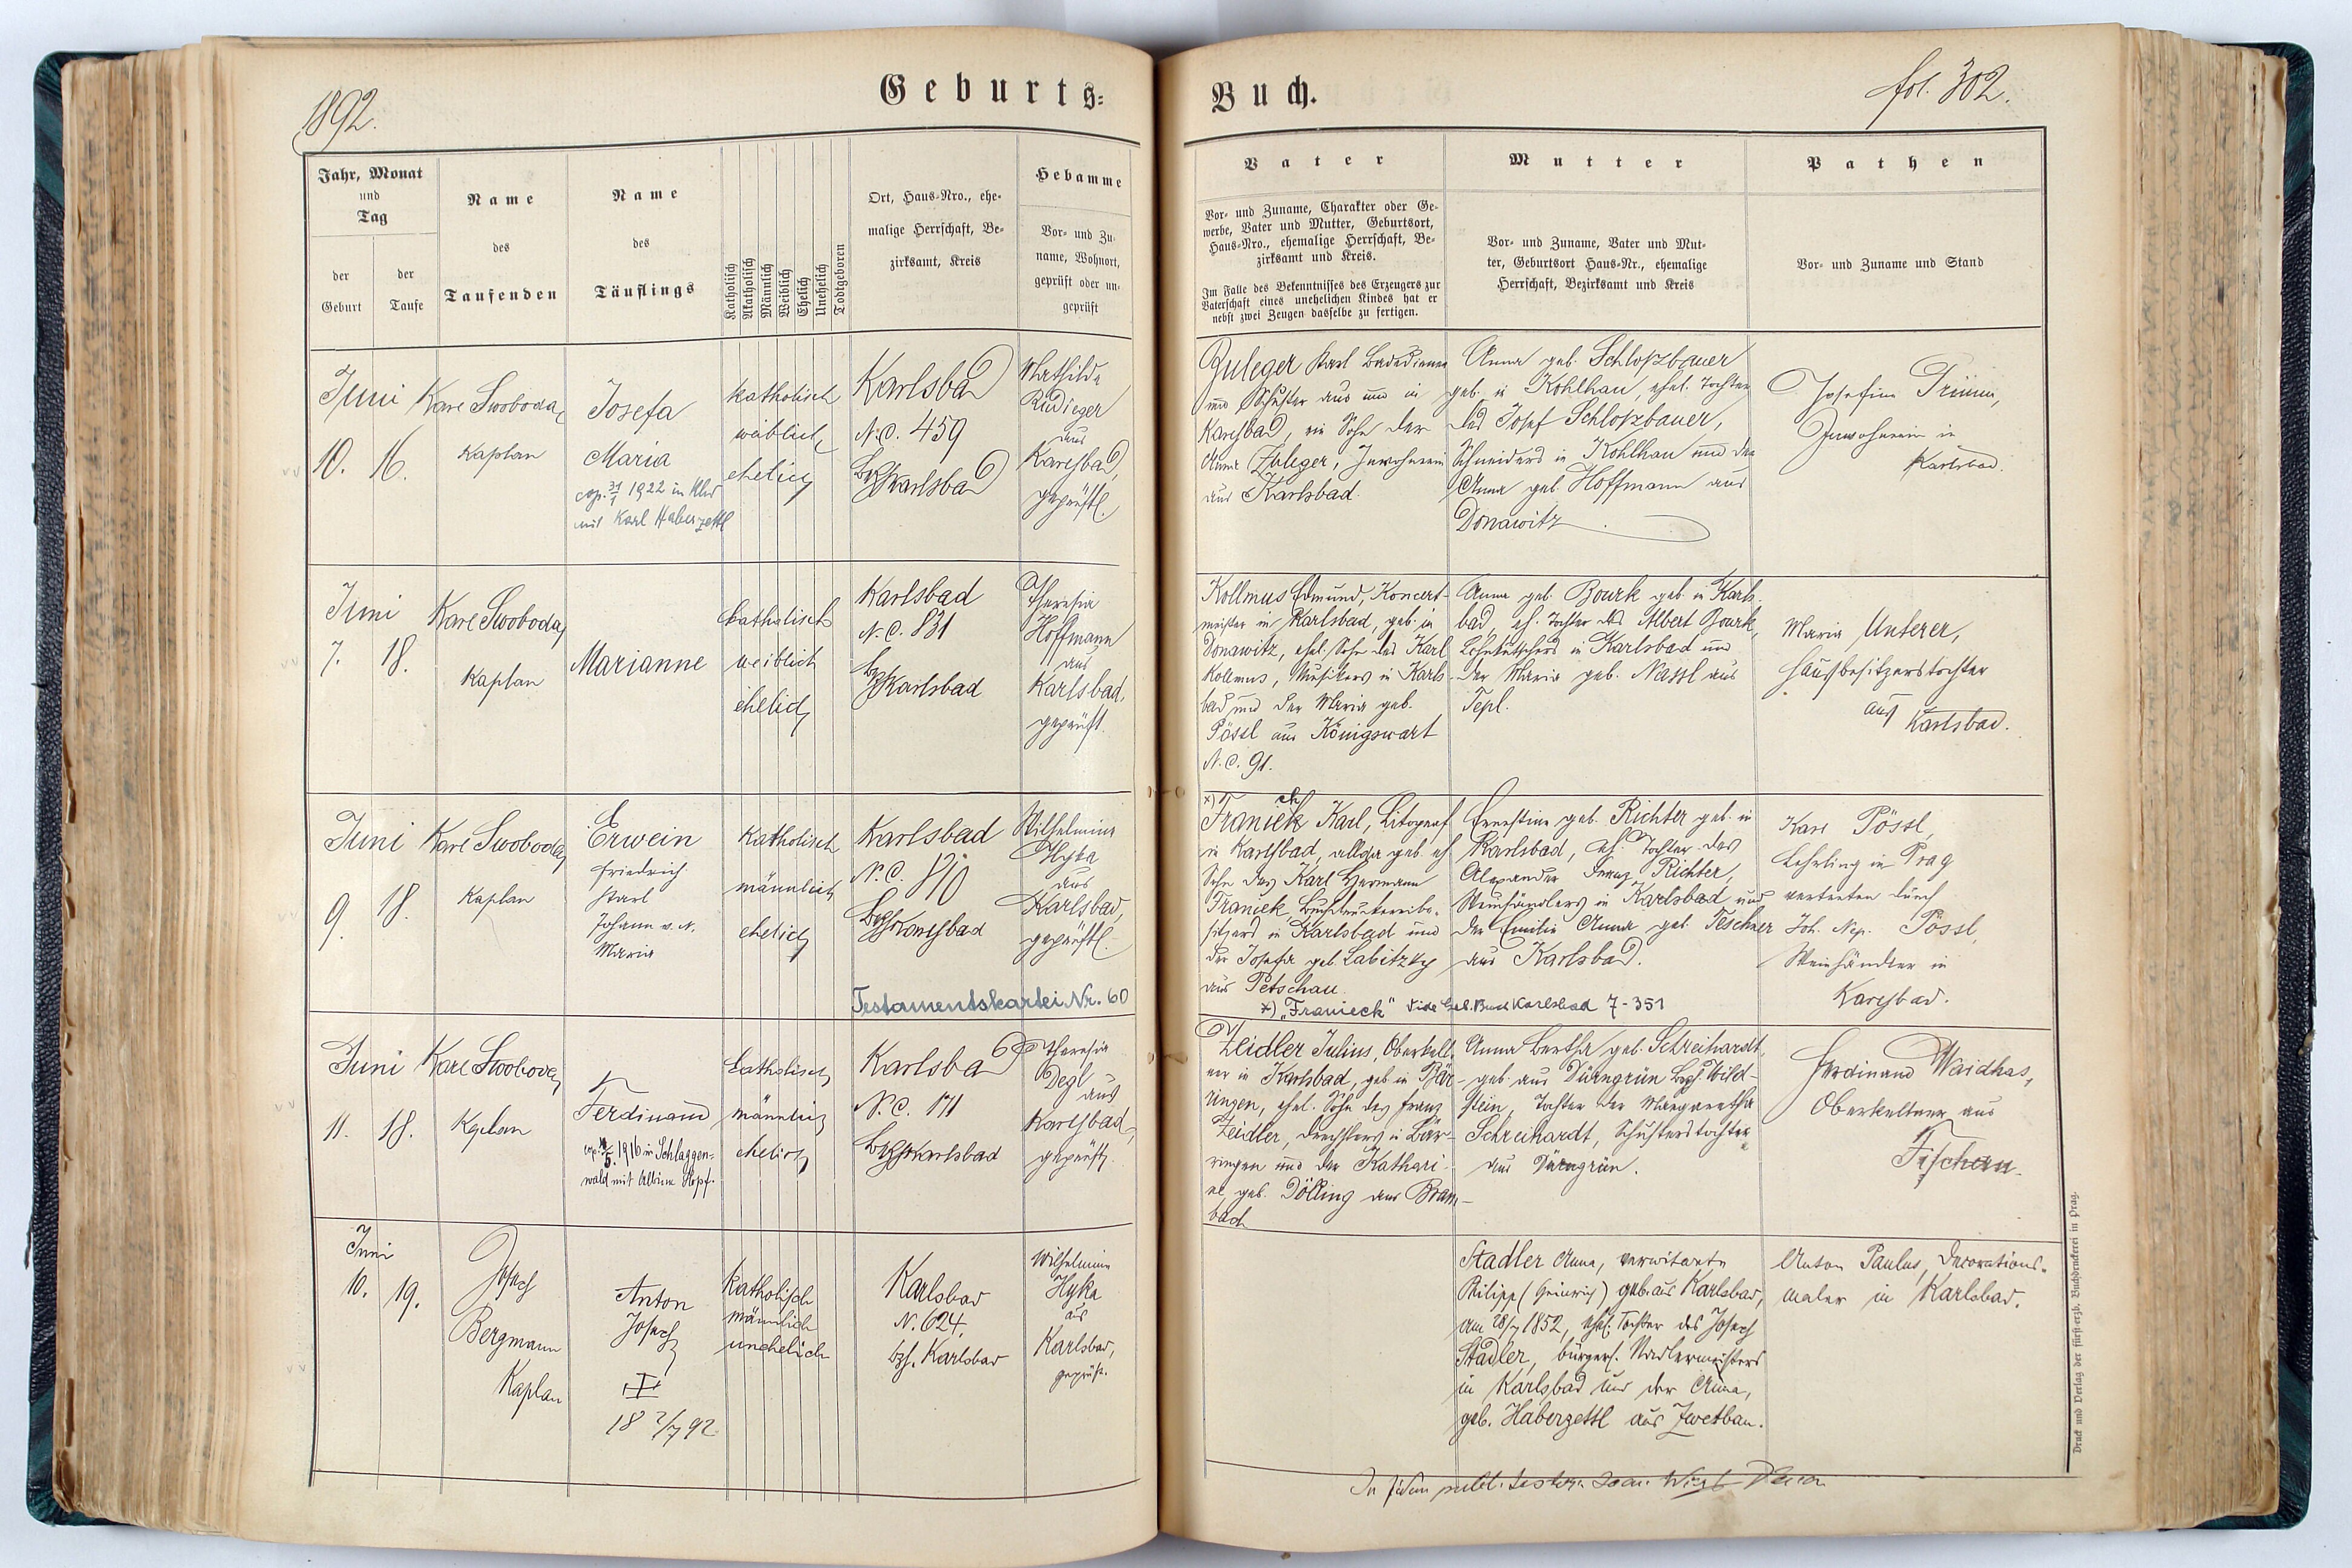 1892.
Geburts-
Jahr, Monat
und
Tag
der
Geburt
der
Taufe
Name
des
Taufenden
Name
des
Täuflings
Katholisch
Akatholisch
Männlich
Weiblich
Ehelich
Unehelich
Todtgeboren
Ort, Haus-Nro., ehe-
malige Herrschaft, Be-
zirksamt, Kreis
Hebamme
Vor- und Zu-
name, Wohnort,
geprüft oder un-
geprüft
Juni
10. 16.
Karl Swoboda,
Kaplan
Josefa
Maria
cop. 31/7 1922 in
mit Karl Haberzettl
katholisch
weiblich
ehelich
Karlsbad
N.C. 459
Bzh Karlsbad
Mathilde
Rudieger
aus
Karlsbad,
geprüft.
Juni
7. 18.
Karl Swoboda,
Kaplan
Marianne
katholisch
weiblich
ehelich
Karlsbad
N.C. 831
Bzh Karlsbad
Theresia
Hoffmann
aus
Karlsbad,
geprüft.
Juni
9. 18.
Karl Swoboda,
Kaplan
Erwein
Friedrich
Karl
Johann v. N.
Maria
katholisch
männlich
ehelich
Karlsbad
N.C. 810
Bzh Karlsbad
Wilhelmine
Hyka
aus
Karlsbad,
geprüft.
Testamentskartei Nr. 60
Juni
11. 18.
Karl Swoboda,
Kaplan
Ferdinand
1916 in Schlaggen-
wald mit Albine Hopf.
katholisch
männlich
ehelich
Karlsbad
N.C. 171
Bzh Karlsbad
Theresia
Degl
aus
Karlsbad,
geprüft.
Juni
10. 19.
Josef
Bergmann
Kaplan
Anton
Josef
18 2/7 92
katholisch
männlich
unehelich
Karlsbad
N. 624.
bzh. Karlsbad
Wilhelmine
Hyka
aus
Karlsbad,
geprüft.
Buch.
fol. 302.
Vater
Vor- und Zuname, Charakter oder Ge-
werbe, Vater und Mutter, Geburtsort,
Haus-Nro., ehemalige Herrschaft, Be-
zirksamt und Kreis.
Im Falle des Bekenntnisses des Erzeugers zur
Vaterschaft eines unehelichen Kindes hat er
nebst zwei Zeugen dasselbe zu fertigen.
Mutter
Vor- und Zuname, Vater und Mut-
ter, Geburtsort Haus-Nr., ehemalige
Herrschaft, Bezirksamt und Kreis
Pathen
Vor- und Zuname und Stand
Zuleger Karl Badediener
und Schuster aus und in
Karlsbad, ein Sohn der
Anna Zuleger, Inwohnerin
aus Karlsbad.
Anna geb. Schlotzbauer
geb. in Kohlhau, ehel. Tochter
des Josef Schlotzbauer,
Schneiders in Kohlhau und der
Anna geb. Hoffmann aus
Donawitz
Josefine Trimm,
Inwohnerin in
Karlsbad.
Kollmus Edmund, Koncert-
meister in Karlsbad, geb. in
Donawitz, ehel. Sohn des Karl
Kollmus, Musikers in Karls-
bad und der Maria geb.
Pössl aus Königswart
N.C. 91.
Anna geb. Bourk geb. in Karls-
bad, eh. Tochter des Albert Bourk,
Lohnkutschers in Karlsbad und
der Maria geb. Nassl aus
Tepl.
Maria Unterer,
Hausbesitzerstochter
aus Karlsbad.
x) Franieck Karl, Litograf
in Karlsbad, allda geb. eh.
Sohn des Karl Hermann
Franieck Buchdruckereibe-
sitzers in Karlsbad und
der Josefa geb. Labitzky
aus Petschau.
Ernestine geb. Richter geb. in
Karlsbad, eh. Tochter des
Alexander Franz Richter,
Weinhändlers in Karlsbad und
der Emilie Anna geb. Teschner
aus Karlsbad.
Karl Pössl,
Lehrling in Prag
vertreten durch
Joh. Nep. Pössl,
Weinhändler in
Karlsbad.
x) „Franieck" Vide Geb. Buch Karlsbad 7-351
Zeidler Julius, Oberkell-
ner in Karlsbad, geb. in Bär-
ringen, ehel. Sohn des Franz
Zeidler, Drechslers in Bär-
ringen und der Kathari-
na, geb. Dölling aus Bram-
bach
Anna Bertha geb. Schreihardt,
geb. aus Dürngrün Bzh. Wild-
stein, Tochter der Margaretha
Schreihardt, Schusterstochter
aus Dürngrün.
Ferdinand Waidhas,
Oberkellner aus
Fischern.
Stadler Anna, verwitwete
Philipp (Heinrich) geb. aus Karlsbad,
am 28/7 1852, ehel. Tochter des Josef
Stadler, bürgerl. Nadlermeisters
in Karlsbad und der Anna,
geb. Haberzettl aus Zwetbau.
Anton Paulus, Decorations-
maler in Karlsbad.
Druck und Verlag der fürst-erzb. Buchdruckerei in Prag.